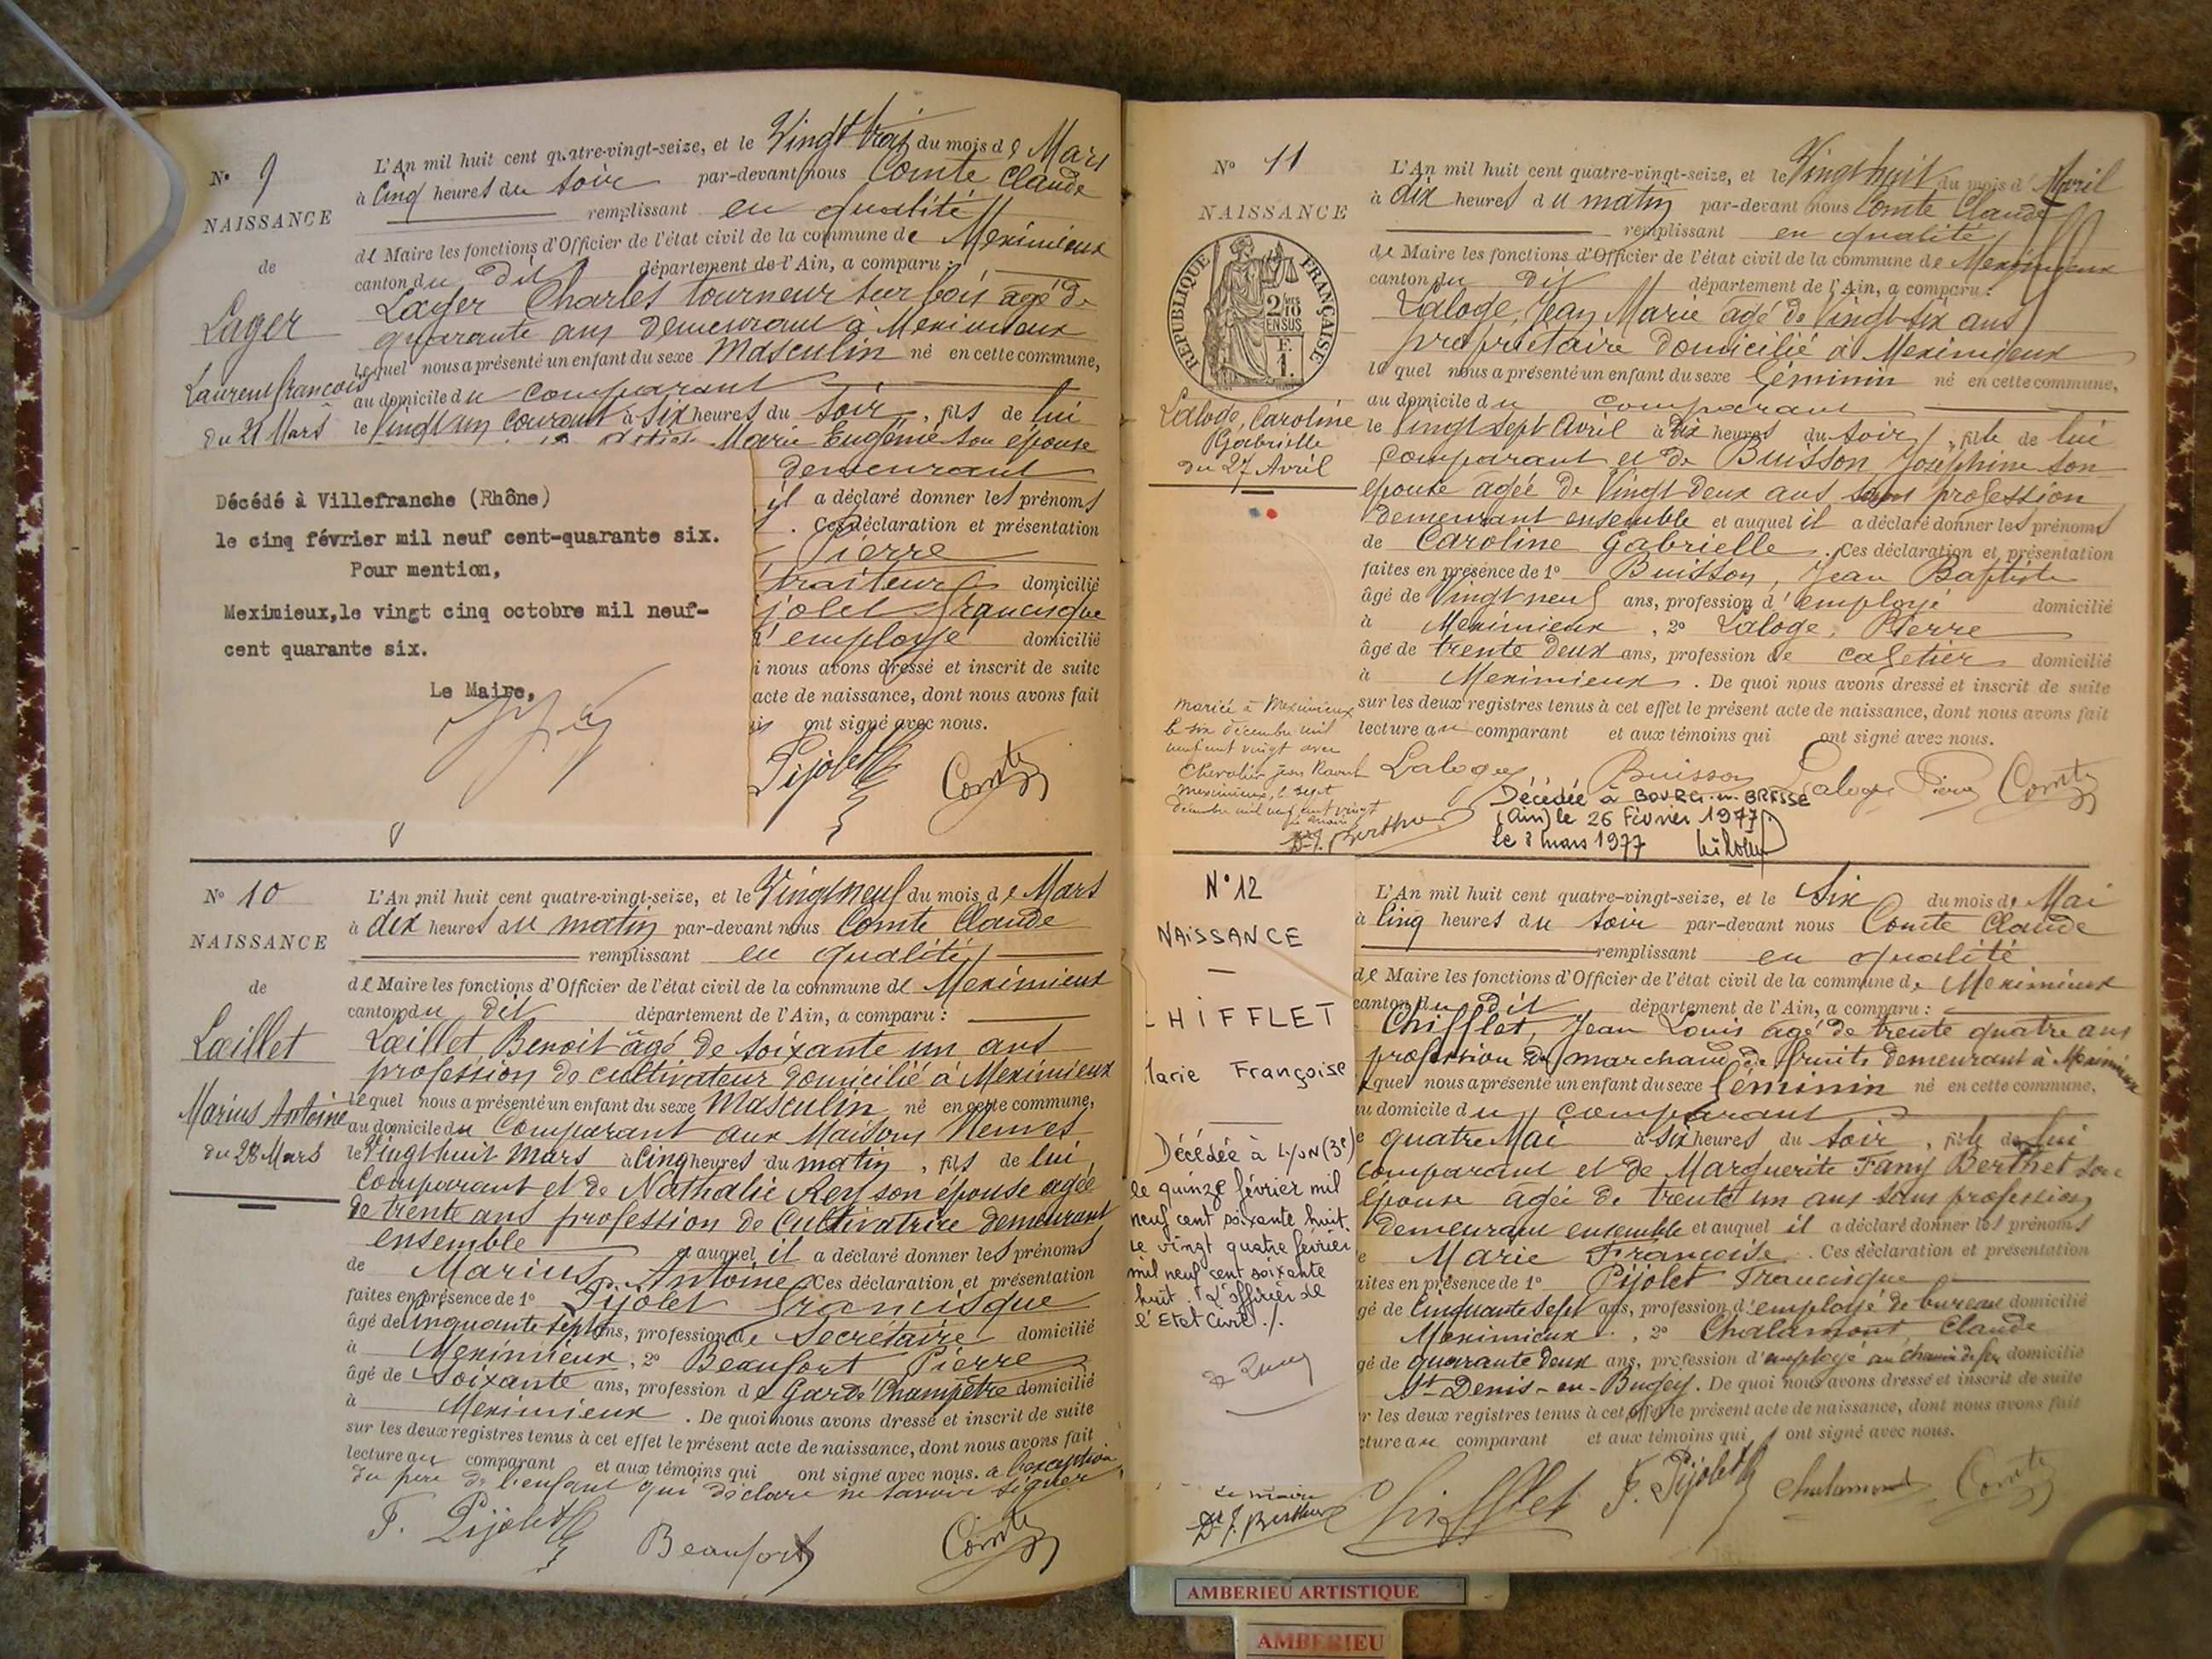 N° 9
NAISSANCE
de
Lager
Laurent François
du 21 Mars
L'An mil huit cent quatre-vingt-seize, et le Vingt trois du mois de Mars
à Cinq heures du soir par-devant nous Comte Claude
remplissant en qualité
de Maire les fonctions d'Officier de l'état civil de la commune de Meximieux
canton du dit département de l'Ain, a comparu :
Lager Charles tourneur sur bois âgé de
quarante ans demeurant à Meximieux
lequel nous a présenté un enfant du sexe Masculin né en cette commune,
au domicile du comparant
le Vingt un courant à six heures du soir, fils de lui
Marie Eugénie son épouse
demeurant
il a déclaré donner les prénoms
. Ces déclaration et présentation
Pierre
traiteur domicilié
jolet Francisque
d'employé domicilié
i nous avons dressé et inscrit de suite
acte de naissance, dont nous avons fait
ont signé avec nous.
Pijolet Comte
Décédé à Villefranche (Rhône)
le cinq février mil neuf cent-quarante six.
Pour mention,
Meximieux,le vingt cinq octobre mil neuf-
cent quarante six.
Le Maire,
N° 10
NAISSANCE
de
Laillet
Marius Antoine
du 28 Mars
L'An mil huit cent quatre-vingt-seize, et le Vingt neuf du mois de Mars
à dix heures du matin par-devant nous Comte Claude
remplissant en qualité
de Maire les fonctions d'Officier de l'état civil de la commune de Meximieux
canton du dit département de l'Ain, a comparu :
Laillet Benoit âgé de soixante un ans
profession de cultivateur domicilié à Meximieux
lequel nous a présenté un enfant du sexe Masculin né en cette commune,
au domicile du Comparant aux Maisons Neuves
le Vingt huit Mars à Cinq heures du matin, fils de lui
Comparant et de Nathalie Rey son épouse agée
de trente ans profession de Cultivatrice demeurant
ensemble et auquel il a déclaré donner les prénoms
de Marius Antoine. Ces déclaration et présentation
faites en présence de 1° Pijolet Francisque
âgé de Cinquante sept ans, profession de Secrétaire domicilié
à Meximieux, 2° Beaufort Pierre
âgé de Soixante ans, profession de Garde Champêtre domicilié
à Meximieux. De quoi nous avons dressé et inscrit de suite
sur les deux registres tenus à cet effet le présent acte de naissance, dont nous avons fait
lecture au comparant et aux témoins qui ont signé avec nous. à l'exception
du père de l'enfant qui déclare ne savoir signer
F. Pijolet Beaufort Comte
N° 11
NAISSANCE
RÉPUBLIQUE FRANÇAISE
2/10
EN SUS
F.
1.
Laloge, Caroline
Gabrielle
du 27 Avril
L'An mil huit cent quatre-vingt-seize, et le Vingt huit du mois d'Avril
à dix heures du matin par-devant nous Comte Claude
remplissant en qualité
de Maire les fonctions d'Officier de l'état civil de la commune de Meximieux
canton du dit département de l'Ain, a comparu :
Laloge, Jean Marie âgé de Vingt-six ans
propriétaire domicilié à Meximieux
lequel nous a présenté un enfant du sexe féminin né en cette commune,
au domicile du comparant
le Vingt sept Avril à Dix heures du soir, fille de lui
Comparant et de Buisson Joséphine son
épouse agée de Vingt Deux ans sans profession
Demeurant ensemble et auquel il a déclaré donner les prénoms
de Caroline Gabrielle. Ces déclaration et présentation
faites en présence de 1° Buisson, Jean Baptiste
âgé de Vingt neuf ans, profession d'employé domicilié
à Meximieux, 2° Laloge, Pierre
âgé de trente deux ans, profession de cafetier domicilié
à Meximieux. De quoi nous avons dressé et inscrit de suite
sur les deux registres tenus à cet effet le présent acte de naissance, dont nous avons fait
lecture au comparant et aux témoins qui ont signé avec nous.
Laloge Buisson Laloge Pierre Comte
mariée à Meximieux
le six décembre mil
neuf cent vingt avec
Chevalier Jean Raoul
Meximieux, le sept
décembre mil neuf cent vingt
le maire
Dr J. Berthier
Décédée à BOURG-en-BRESSE
(Ain) le 26 Février 1977
le 8 mars 1977
N° 12
NAISSANCE
HIFFLET
Marie Françoise
Décédée à LYON (3e)
le quinze février mil
neuf cent soixante huit.
Le vingt quatre février
mil neuf cent soixante
huit. L'officier de
l'Etat Civil ./.
Le maire
Dr J. Berthier
L'An mil huit cent quatre-vingt-seize, et le Six du mois de Mai
à Cinq heures du soir par-devant nous Comte Claude
remplissant en qualité
de Maire les fonctions d'Officier de l'état civil de la commune de Meximieux
canton du dit département de l'Ain, a comparu :
Chifflet, Jean Louis agé de trente quatre ans
profession de marchand de fruits demeurant à Meximieux
lequel nous a présenté un enfant du sexe féminin né en cette commune,
au domicile du comparant
le quatre Mai à six heures du soir, fille de lui
comparant et de Marguerite Fany Berthet son
épouse âgée de trente un ans sans profession
demeurant ensemble et auquel il a déclaré donner les prénoms
Marie Françoise. Ces déclaration et présentation
faites en présence de 1° Pijolet Francisque
âgé de Cinquante sept ans, profession d'employé de bureau domicilié
Meximieux, 2° Chalamont, Claude
âgé de quarante deux ans, profession d'employé au chemin de fer domicilié
St Denis-en-Bugey. De quoi nous avons dressé et inscrit de suite
sur les deux registres tenus à cet effet le présent acte de naissance, dont nous avons fait
lecture au comparant et aux témoins qui ont signé avec nous.
Chifflet F. Pijolet Chalamont Comte
AMBERIEU ARTISTIQUE
AMBERIEU